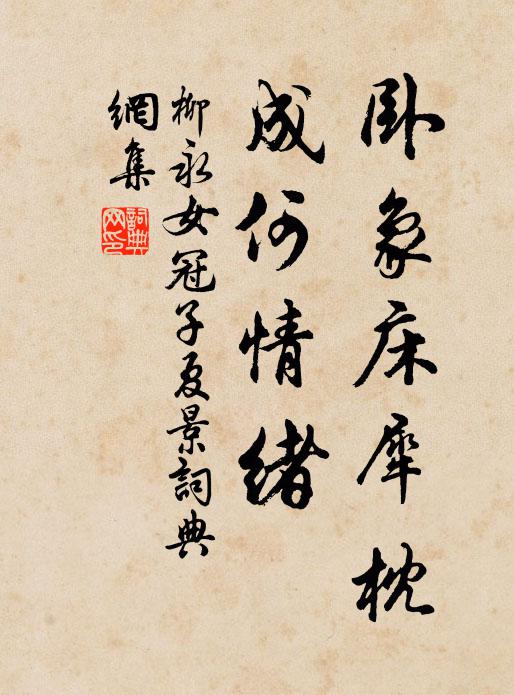 卧象床犀枕
成何情緒
柳永女冠子夏景詞典
網集
詞典網印